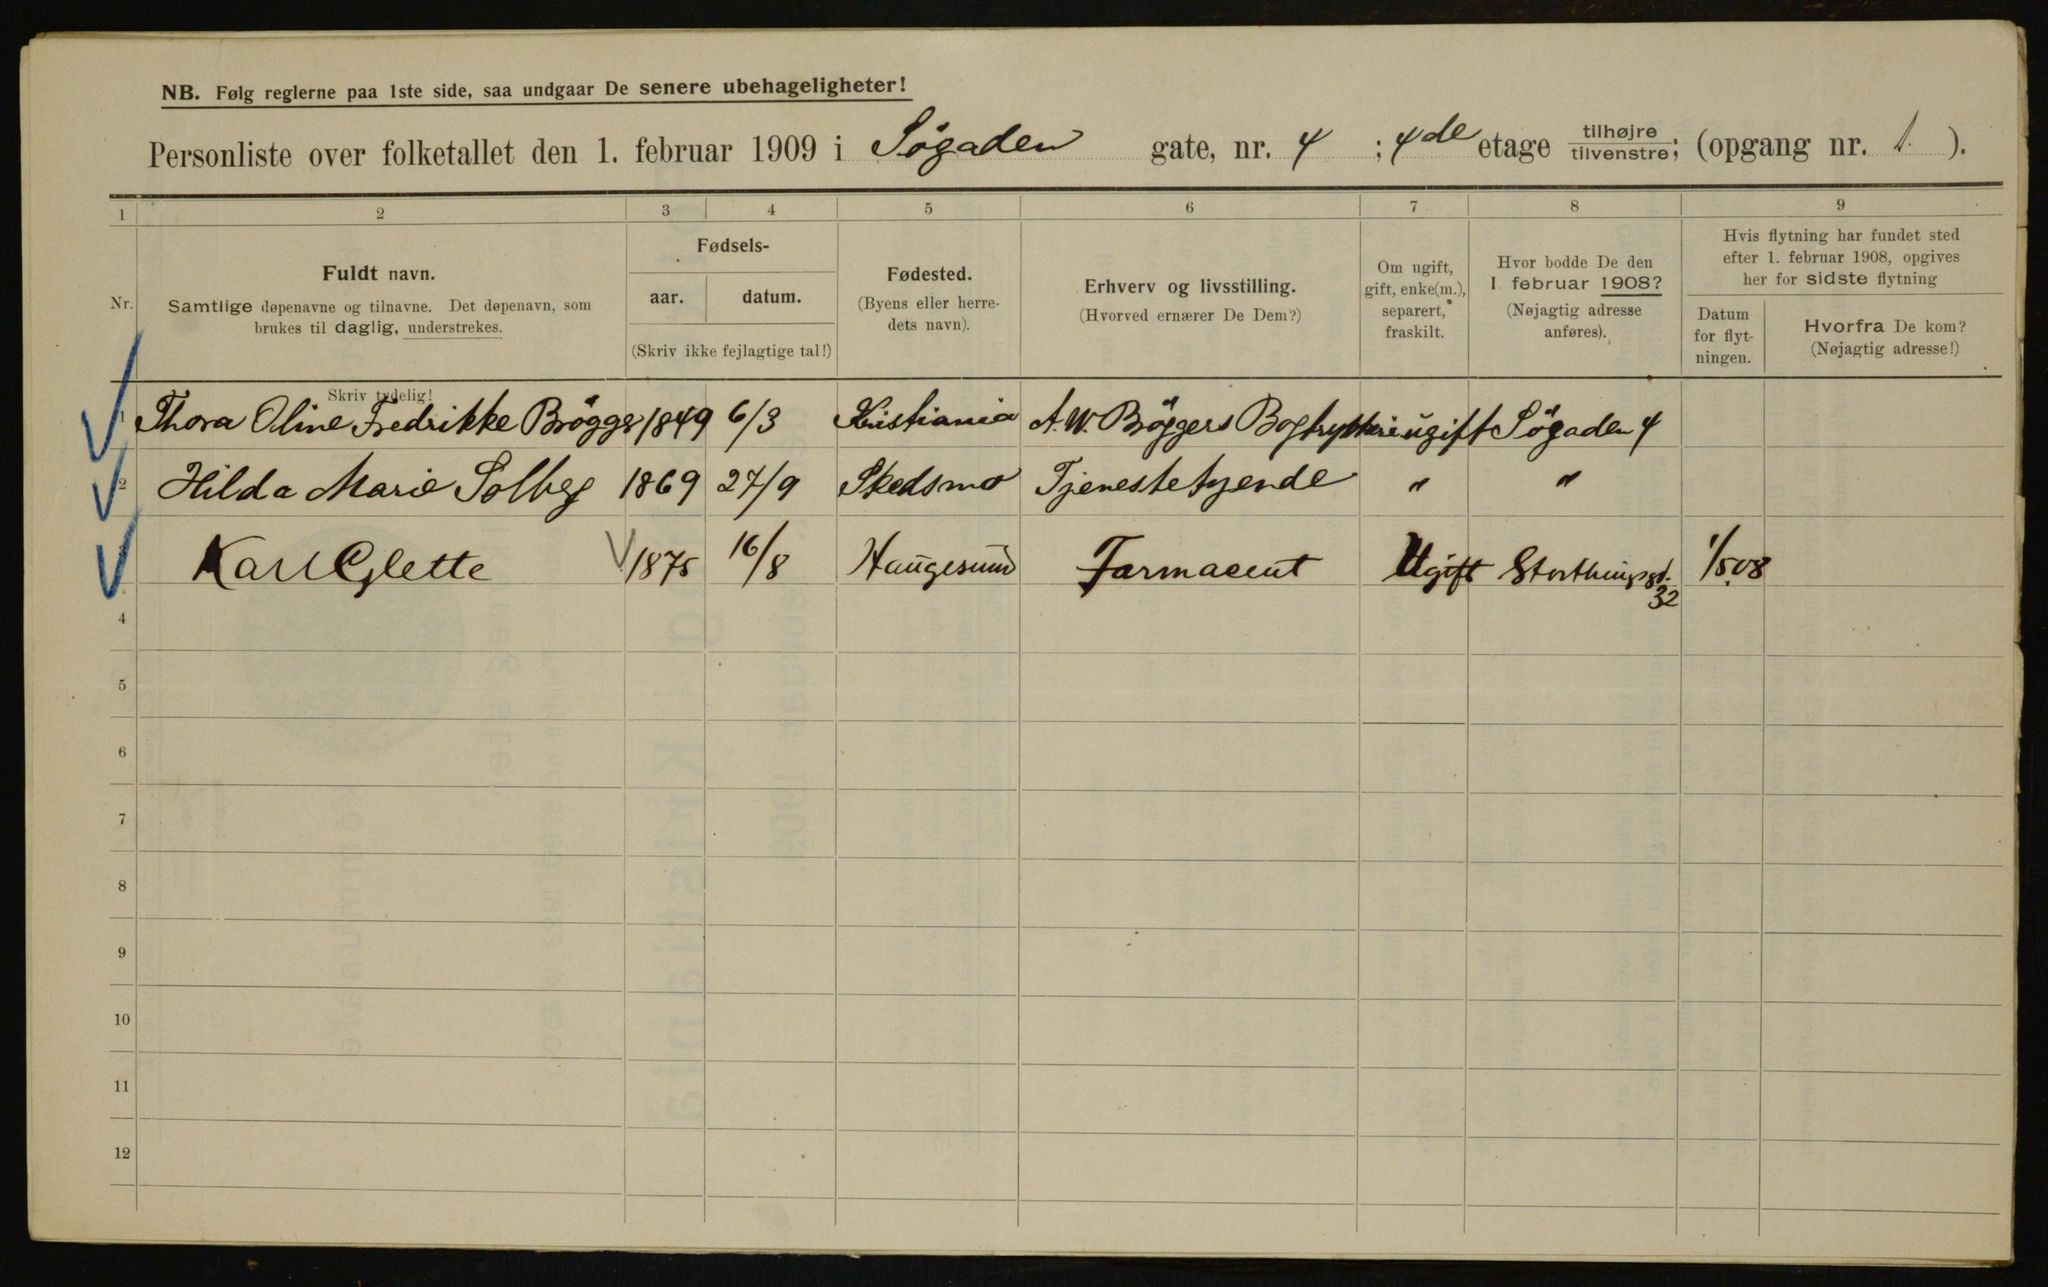 NB. Følg reglerne paa 1ste side, saa undgaar De senere ubehageligheter!
Personliste over folketallet den 1. februar 1909 i Søgaden gate, nr. 4 ; 4de etage tilhøjre tilvenstre; (opgang nr. 1. ).
1 2 3 4 5 6 7 8 9
Nr.
Fuldt navn.
Samtlige døpenavne og tilnavne. Det døpenavn, som
brukes til daglig, understrekes.
Skriv tydelig!
Fødsels-
aar. datum.
(Skriv ikke fejlagtige tal!)
Fødested.
(Byens eller herre-
dets navn).
Erhverv og livsstilling.
(Hvorved ernærer De Dem?)
Om ugift,
gift, enke(m.),
separert,
fraskilt.
Hvor bodde De den
1. februar 1908?
(Nøjagtig adresse
anføres).
Hvis flytning har fundet sted
efter 1. februar 1908, opgives
her for sidste flytning
Datum
for flyt-
ningen.
Hvorfra De kom?
(Nøjagtig adresse!)
1 Thora Oline Fredrikke Brøgger 1849 6/3 Kristiania A. W. Brøggers Bogtrykkeri ugift Søgaden 4
2 Hilda Marie Solberg 1869 27/9 Skedsmo Tjenestetyende " "
3 Karl Eglette 1875 16/8 Haugesund Farmaceut Ugift Storthingsgt. 32 1/5 08
4
5
6
7
8
9
10
11
12